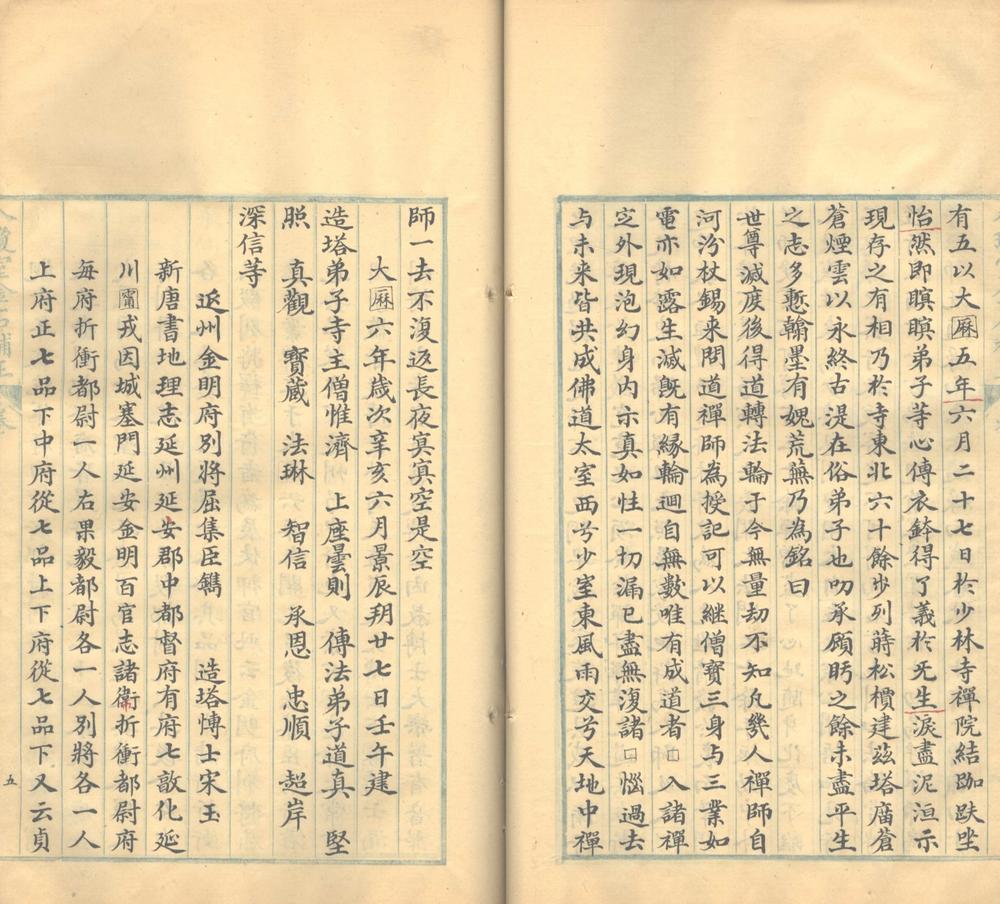 有五以大厤五年六月二十七日於少林寺禪院結跏趺坐
怡然即瞑瞑弟子等心傳衣鉢得了義於旡生淚盡泥洹示
現存之有相乃於寺東北六十餘步列蒔松檟建茲塔廟蒼
蒼煙雲以永終古湜在俗弟子也叨承顧眄之餘未盡平生
之志多慙翰墨有媿荒蕪乃為銘曰
世尊減度後得道轉法輪于今無量劫不知凡幾人禪師自
河汾杖錫来問道禪師為授記可以継僧寳三身与三業如
電亦如露生減旣有緣輪迴自無數唯有成道者□入諸禪
定外現泡幻身內示真如性一切漏已盡無復諸□惱過去
与未来皆共成佛道太室西兮少室東風雨交兮天地中禪
師一去不復返長夜冥冥空是空
大厤六年歳次辛亥六月景辰朔廿七日壬午建
造塔弟子寺主僧惟濟 上座曇則 傳法弟子道真 堅
照 真觀 寳藏 法琳 智信 承恩 忠順 超岸
深信等
延州金明府別將屈集臣鐫 造塔愽士宋玉
新唐書地理志延州延安郡中都督府有府七敦化延
川甯戎因城塞門延安金明百官志諸衛折衝都尉府
每府折衝都尉一人右果毅都尉各一人別將各一人
上府正七品下中府從七品上下府從七品下又云貞
五